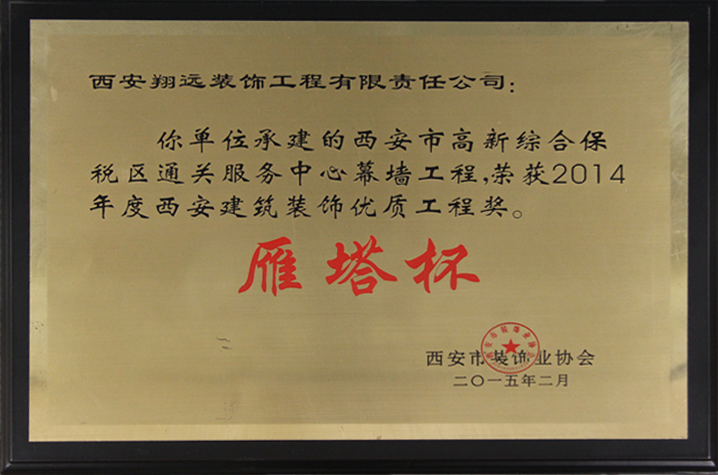 西安翔远装饰工程有限责任公司:
你单位承建的西安市高新综合保
税区通关服务中心幕墙工程,荣获2014
年度西安建筑装饰优质工程奖。
雁塔杯
西安市装饰业协会
二〇一五年二月